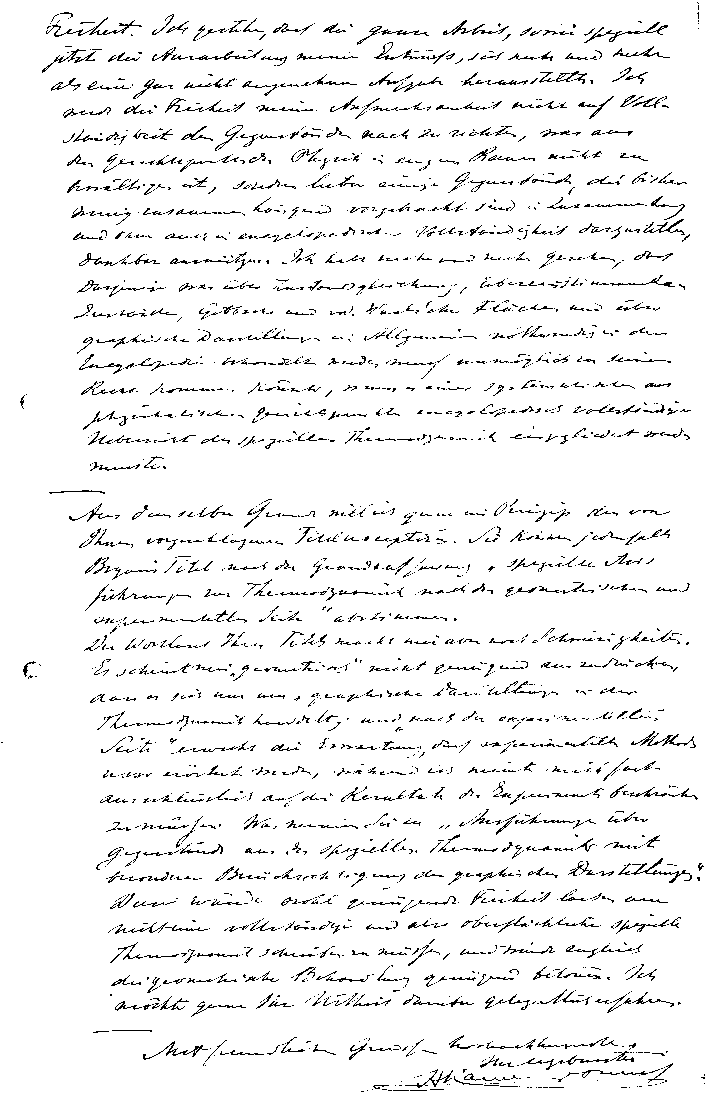 Freiheit. Ich gestehe, dass die ganze Arbeit, sowie speziell
jetzt die Ausarbeitung meines Entwurfs, sich mehr und mehr
als eine gar nicht angenehme Aufgabe herausstellte. Ich
werde die Freiheit meine Aufmerksamkeit nicht auf Voll-
ständigkeit der Gegenstände nach zu richten, was aus
dem Physik in engem Raume nicht zu
bewältigen ist, sondern lieber einige Gegenstände, die bisher
wenig zusammenhängend vorgebracht sind in Zusammenhang
und ohne encyclopedische Vollständigkeit darzustellen,
dankbar ausnützen. Ich habe mehr und mehr gesehen, dass
dasjenige was über Zustandsgleichung, übereinstimmende
Zustände, Gibbssche und v.d. Waalssche Flächen und über
graphische Darstellungen im Allgemeinen nothwendig in der
Encyclopedie behandelt werden muss unmöglich zu seinem
Recht kommen könnte, wenn es einer systematischen aus
physikalischen Gesichtspunkten encyclopedisch vollständigen
Uebersicht der speziellen Thermodynamik eingegliedert werden
müsste.
Aus demselben Grunde will ich gerne im Prinzip den von
Ihnen vorgeschlagenen Titel acceptieren. Sie können jedenfalls
Bryans Titel nach der Grundauffassung „spezielle Aus-
führungen zur Thermodynamik nach der geometrischen und
experimentellen Seite“ abstimmen.
Der Wortlaut Ihres Titels macht mir aber noch Schwierigkeiten.
Es scheint mir „geometrisch“ nicht genügend auszudrücken,
dass es sich nur um „graphische Darstellungen in der
Thermodynamik“ handelt, und „nach der experimentellen
Seite“ erweckt die Erwartung, dass experimentelle Methoden
werden, während ich meinte mich fast
ausschliesslich auf die Resultate der Experimente beschränken
zu müssen. Was meinen Sie zu „Ausführungen über
Gegenstände aus der speziellen Thermodynamik mit
besonderer Berücksichtigung der graphischen Darstellungen“.
Dann würde wohl genügende Freiheit lassen um
nicht eine vollständige und also oberflächliche spezielle
Thermodynamik schreiben zu müssen, und würde zugleich
die geometrische Behandlung genügend betonen. Ich
möchte gerne Ihr Urtheil darüber gelegentlich erfahren.
Mit freundlichen Grüssen hochachtungsvoll
Ihr ergebenster
H Kamerlingh Onnes